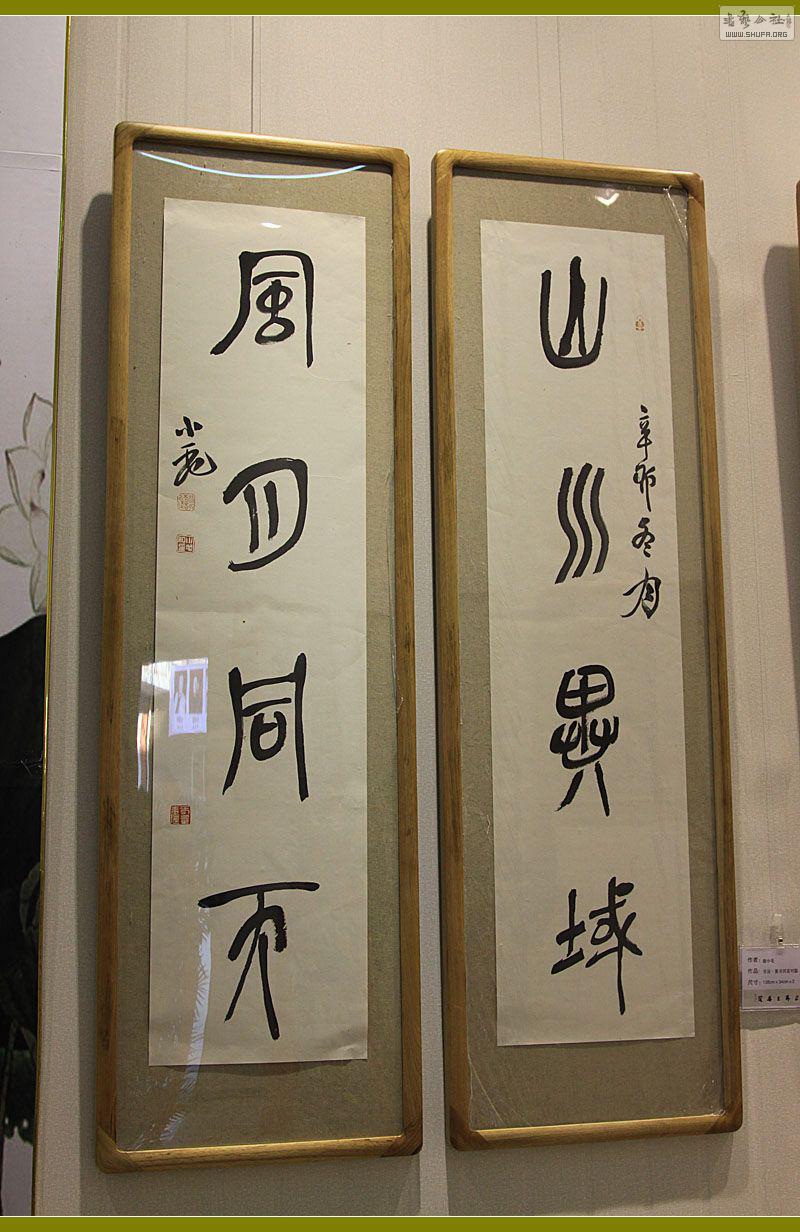 山川異域
辛卯冬月
風月同天
小毛
書藝公社
WWW.SHUFA.ORG
作者：
作品：
尺寸：138cm x 34cm x 2